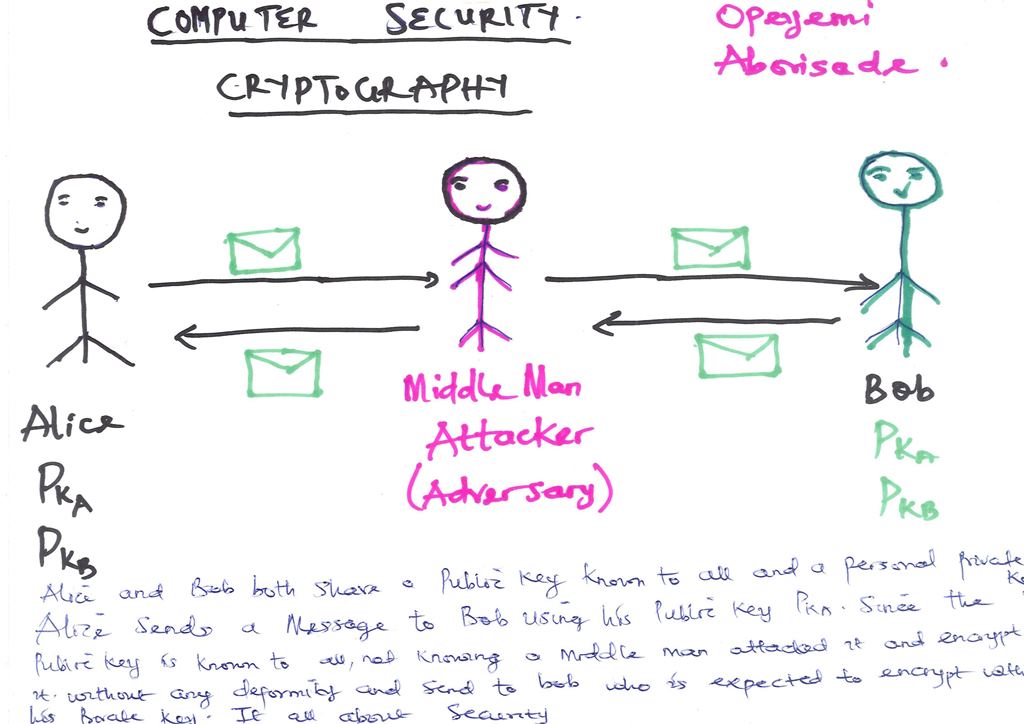 COMPUTER SECURITY.
Opeyemi
Aborisade.
CRYPTOGRAPHY
Alice
PKA
PKB
Middle Man
Attacker
(Adversary)
Bob
PKA
PKB
Alice and Bob both share a Public key known to all and a personal private
Alice sends a Message to Bob using his Public key PKA. Since the
Public key is known to all, not knowing a middle man attacked it and encrypt
it. without any deformity and send to bob who is expected to encrypt with
his Private key. It all about Security